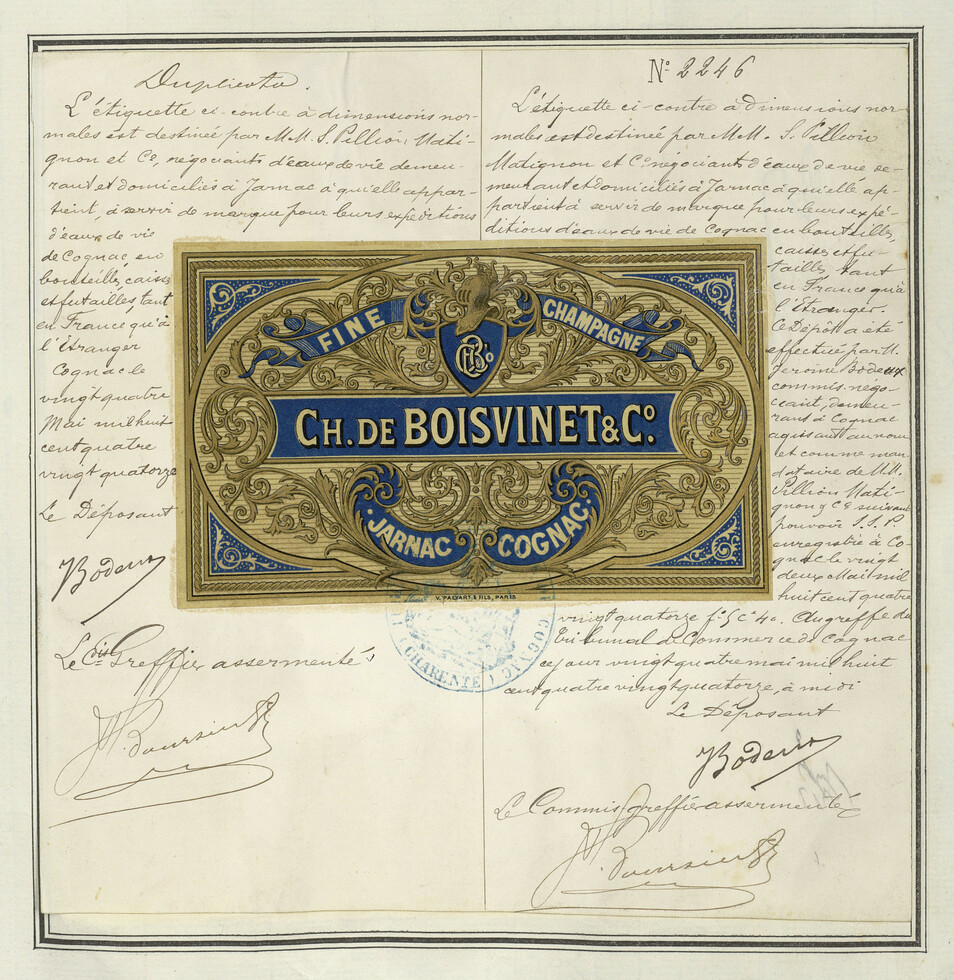 Duplicata.
L'étiquette ci-contre à dimensions nor-
males est destinée par M.M. S. Pillion, Mati-
gnon et Cº, négociants d'eaux de vie demeu-
rant et domiciliés à Jarnac à qu'elle appar-
tient, à servir de marque pour leurs expéditions
d'eaux de vie
de Cognac en
bouteilles, caisses
et futailles, tant
en France qu'à
l'Etranger
Cognac le
vingt quatre
Mai mil huit
cent quatre
vingt quatorze
Le Déposant
Le Cis Greffier assermenté
Nº 2246
L'étiquette ci-contre à dimensions nor-
males est destinée par M.M. S. Pillion
Matignon et Cº négociants d'eaux de vie, de-
meurant et domiciliés à Jarnac à qu'elle ap-
partient à servir de marque pour leurs expé-
ditions d'eaux de vie de Cognac en bouteilles,
caisses et fu-
tailles, tant
en France qu'à
l'Etranger.
Ce Dépôt a été
effectué par M.
Jerome Bodeux
commis négo-
ciant, demeu-
rant à Cognac
agissant au nom
et comme man
dataire de M.M.
Pillion Mati-
gnon & Cº suivant
pouvoir S.S.P.
enregistré à Co-
gnac le vingt
deux Mai mil
huit cent quatre
vingt quatorze fº 5 cº 40. Au greffe du
Tribunal de Commerce de Cognac
ce jour vingt quatre mai mil huit
cent quatre vingt quatorze, à midi
Le Déposant
Le Commis Greffier assermenté
FINE CHAMPAGNE
CH. DE BOISVINET & Cº.
JARNAC COGNAC
V. PALYART & FILS, PARIS
COGNAC (CHARENTE)